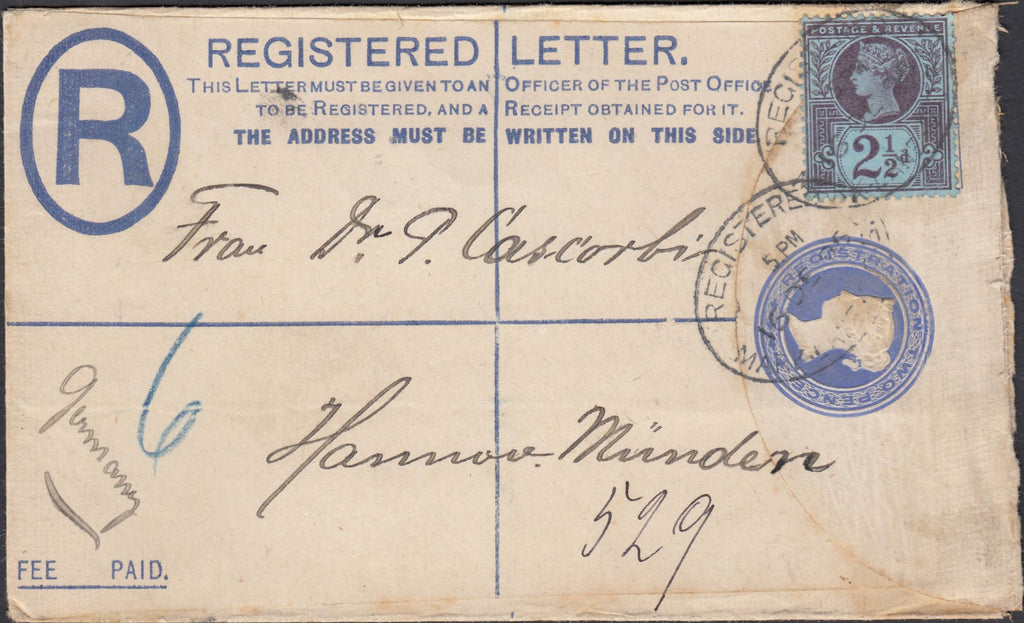 R
REGISTERED LETTER.
THIS LETTER MUST BE GIVEN TO AN OFFICER OF THE POST OFFICE
TO BE REGISTERED, AND A RECEIPT OBTAINED FOR IT.
THE ADDRESS MUST BE WRITTEN ON THIS SIDE
POSTAGE & REVENUE
2½d
REGIS
REGISTERE
5 PM
16 DE
REGISTRATION
Frau Dr. P. Cascorbi
Hannov. Münden
529
Germany
6
FEE PAID.